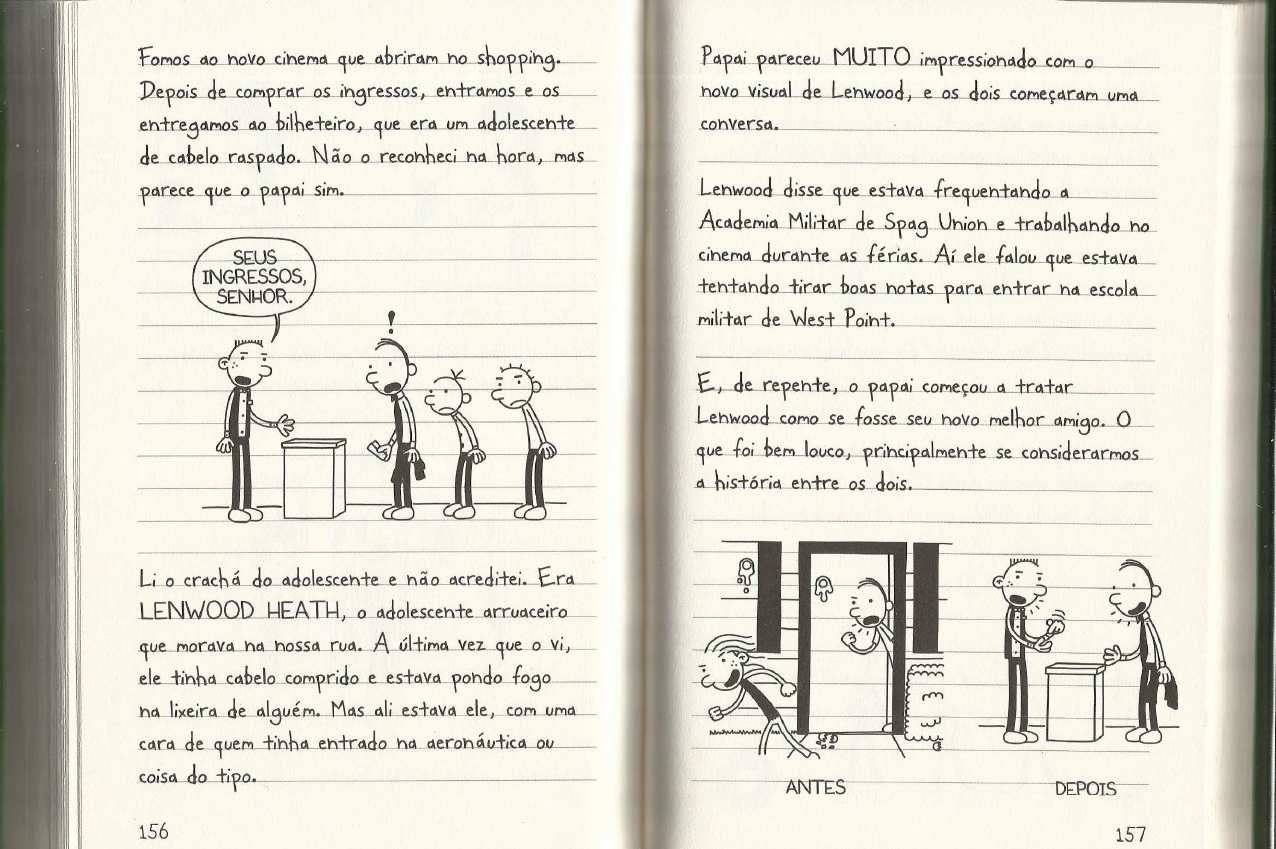 Fomos ao novo cinema que abriram no shopping.
Depois de comprar os ingressos, entramos e os
entregamos ao bilheteiro, que era um adolescente
de cabelo raspado. Não o reconheci na hora, mas
parece que o papai sim.
SEUS
INGRESSOS,
SENHOR.
!
Li o crachá do adolescente e não acreditei. Era
LENWOOD HEATH, o adolescente arruaceiro
que morava na nossa rua. A última vez que o vi,
ele tinha cabelo comprido e estava pondo fogo
na lixeira de alguém. Mas ali estava ele, com uma
cara de quem tinha entrado na aeronáutica ou
coisa do tipo.
156
Papai pareceu MUITO impressionado com o
novo visual de Lenwood, e os dois começaram uma
conversa.
Lenwood disse que estava frequentando a
Academia Militar de Spag Union e trabalhando no
cinema durante as férias. Aí ele falou que estava
tentando tirar boas notas para entrar na escola
militar de West Point.
E, de repente, o papai começou a tratar
Lenwood como se fosse seu novo melhor amigo. O
que foi bem louco, principalmente se considerarmos
a história entre os dois.
ANTES
DEPOIS
157